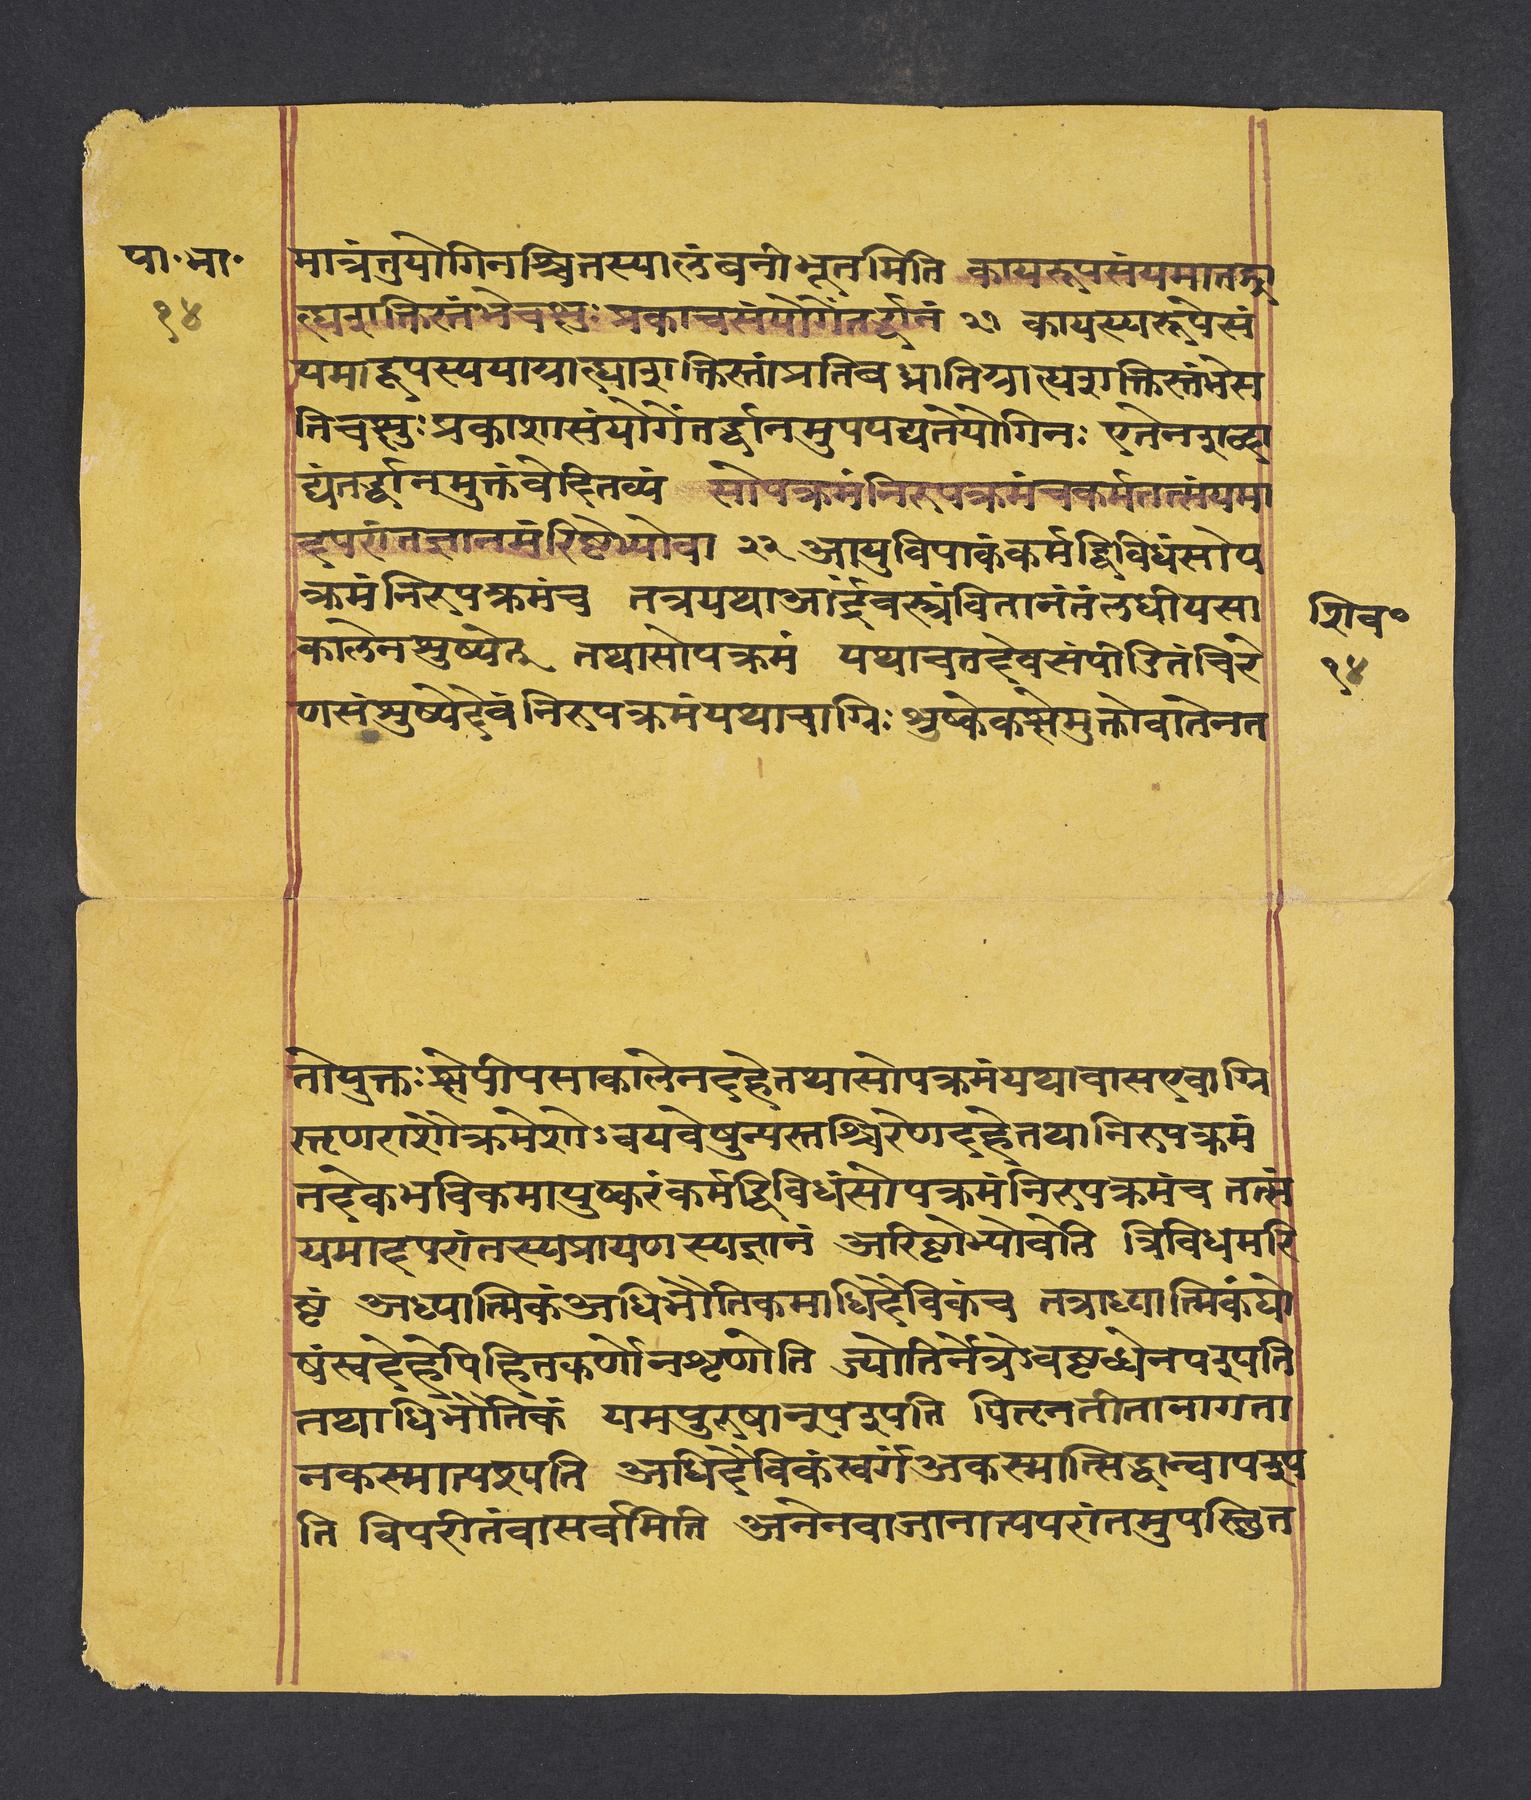 पा॰भा॰
१४
मात्रंतुयोगिनश्चित्तस्यालंबनीभूतमिति कायरूपसंयमातद्ग्रा
ह्यशक्तिस्तंभेचक्षुः प्रकाचसंयोगेंतर्द्धानं २१ कायस्यरूपेसं
यमाद्रूपस्ययाग्राह्याशक्तिस्तांप्रतिबध्नातिग्राह्यशक्तिस्तंभेस
तिचक्षुःप्रकाशासंयोगेंतर्द्धानमुपपद्यतेयोगिनः एतेनशब्दा
द्यंतर्द्धानमुक्तंवेदितव्यं सोपक्रमंनिरुपक्रमंचकर्मतत्संयमा
दपरांतज्ञानमरिष्टेभ्योवा २२ आयुविपाकंकर्मद्विविधंसोप
क्रमंनिरुपक्रमंच तत्रयथाआर्द्रंवस्त्रंवितानंतंलघीयसा
कालेनशुष्येत् तथासोपक्रमं यथाचतदेवसंपीडितंचिरे
णसंशुष्येदेवंनिरुपक्रमंयथाचाग्निः शुष्केकक्षेमुक्तोवातेनत
शिव॰
१४
तोयुक्तःक्षेपीयसाकालेनदहेतथासोपक्रमंयथावासएवाग्नि
स्तृणराशौक्रमेशोऽवयवेषुन्यस्तश्चिरेणदहेतथानिरुपक्रमं
तदेकभविकमायुष्करंकर्मद्विविधंसोपक्रमंनिरुपक्रमंच तत्सं
यमादपरांतस्यप्रायणस्यज्ञानं अरिष्टेभ्योवेति त्रिविधमरि
ष्टं अध्यात्मिकंअधिभौतिकमाधिदैविकंच तत्राध्यात्मिकंघो
षंस्वदेहेपिहितकर्णोनशृणोति ज्योतिर्नेत्रेऽवष्टब्धेनपश्यति
तथाधिभौतिकं यमपुरुषानुपश्यति पितॄनतीतानागता
नकस्मात्पश्यति अधिदैविकंस्वर्गंअकस्मात्सिद्धान्वापश्य
ति विपरीतंवासर्वमिति अनेनवाजानात्यपरांतमुपस्थित